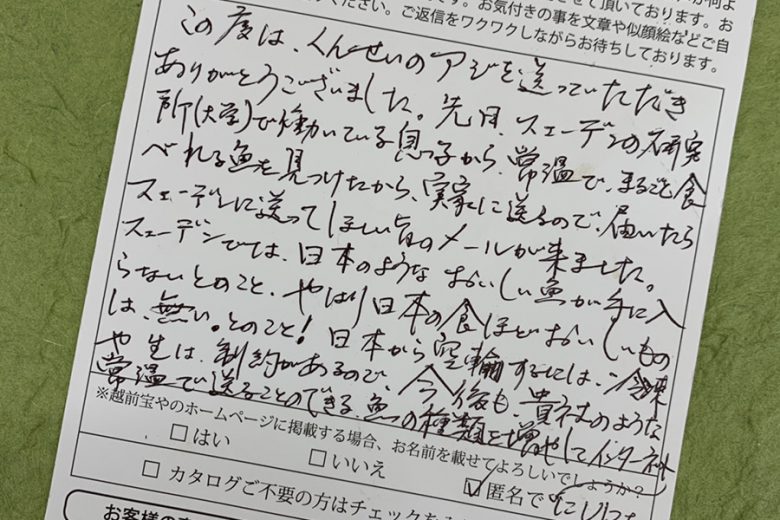 させて頂いております。お
ください。お気付きの事を文章や似顔絵などご自
です。ご返信をワクワクしながらお待ちしております。
この度は、くんせいのアジを送っていただき
ありがとうございました。先日、スエーデンの研究
所(大学)で働いている息子から、常温で、まるごと食
べれる魚を見つけたから、実家に送るので、届いたら
スエーデンに送ってほしい旨のメールが来ました。
スエーデンでは、日本のようなおいしい魚が手に入
らないとのこと、やはり日本の食ほどおいしいもの
は、無い。とのこと! 日本から空輸するには、冷凍
や生は、制約があるので、今後も、貴社のような
常温で送ることのできる魚の種類を増やしてインターネット
※越前宝やのホームページに掲載する場合、お名前を載せてよろしいでしょうか?
□ はい □ いいえ ☑ 匿名で
□ カタログご不要の方はチェックを
お客様の